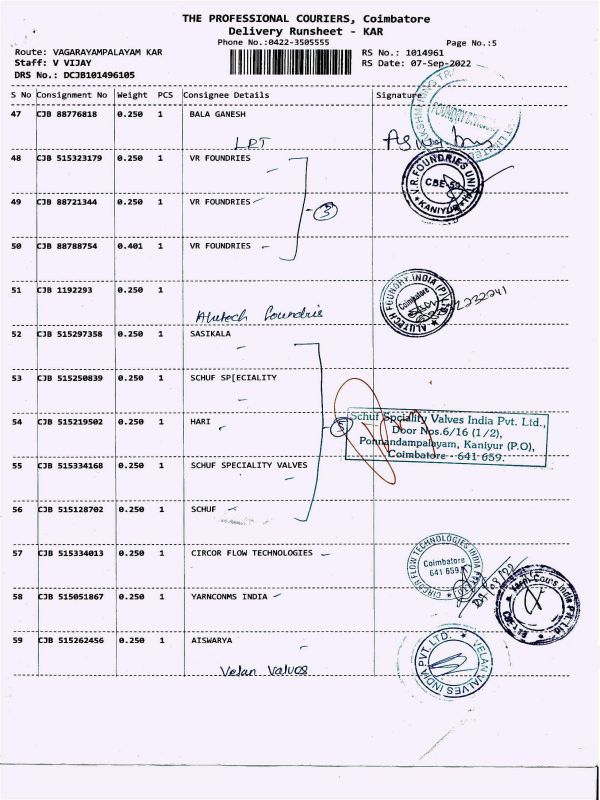 THE PROFESSIONAL COURIERS, Coimbatore
Delivery Runsheet - KAR
Phone No.:0422-3505555
Page No.:5
Route: VAGARAYAMPALAYAM KAR
RS No.: 1014961
Staff: V VIJAY
RS Date: 07-Sep-2022
DRS No.: DCJB101496105
S No Consignment No Weight PCS Consignee Details Signature
47 CJB 88776818 0.250 1 BALA GANESH
LPT
FOUNDRY DIVISION
48 CJB 515323179 0.250 1 VR FOUNDRIES
V.R. FOUNDRIES UNIT
CBE-59
KANIYUR
49 CJB 88721344 0.250 1 VR FOUNDRIES
3
50 CJB 88788754 0.401 1 VR FOUNDRIES
51 CJB 1192293 0.250 1
Alutech Foundris
ALUTECH FOUNDRY INDIA (P) LTD
Coimbatore
52 CJB 515297358 0.250 1 SASIKALA
53 CJB 515250839 0.250 1 SCHUF SP[ECIALITY
54 CJB 515219502 0.250 1 HARI
5
Schuf Spciality Valves India Pvt. Ltd.,
Door Nos.6/16 (1/2),
Ponnandampalayam, Kaniyur (P.O),
Coimbatore - 641 659.
55 CJB 515334168 0.250 1 SCHUF SPECIALITY VALVES
56 CJB 515128702 0.250 1 SCHUF
57 CJB 515334013 0.250 1 CIRCOR FLOW TECHNOLOGIES
CIRCOR FLOW TECHNOLOGIES INDIA PVT LTD
Coimbatore
641 659
58 CJB 515051867 0.250 1 YARNCONMS INDIA
59 CJB 515262456 0.250 1 AISWARYA
Velan Valves
VELAN VALVES INDIA PVT. LTD.